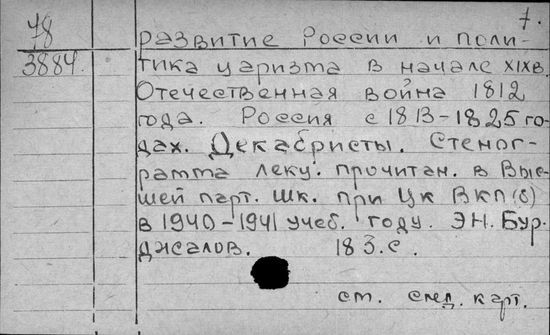 7.
78
развитие России и поли-
3884. тика царизма в начале XIXв.
Отечественная война 1812
года. Россия с 1813-1825 го-
дах. Декабристы. Стеног-
рамма лекц. прочитан. в Выс-
шей парт. шк. при ЦК ВКП(б)
в 1940-1941 учеб. году. Э.Н. Бур-
джалов. 183.с.
см. след. карт.